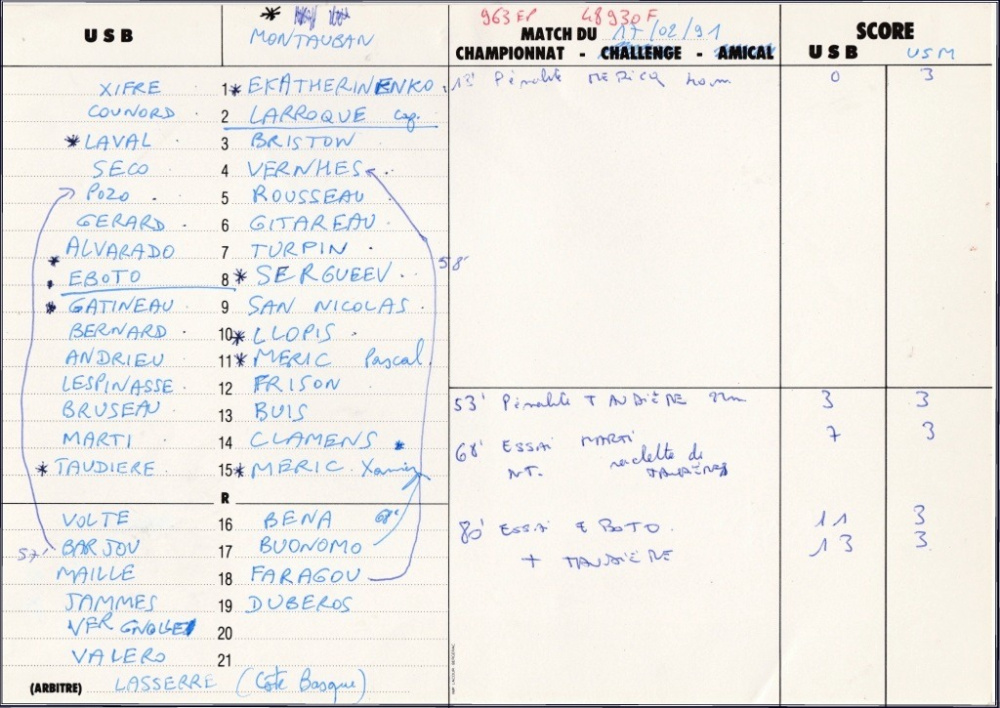 963 EP 48930 F
USB * MONTAUBAN MATCH DU 17/02/91 SCORE
CHAMPIONNAT - CHALLENGE - AMICAL USB USM
XIFRE 1 * EKATHERINENKO 13' Pénalité MERICQ 40m 0 3
COUNORD 2 LARROQUE Cap.
* LAVAL 3 BRISTOW
SECO 4 VERNHES
POZO 5 ROUSSEAU
GERARD 6 GITAREAU
* ALVARADO 7 TURPIN 58'
EBOTO 8 * SERGUEEV
* GATINEAU 9 SAN NICOLAS
BERNARD 10 * LLOPIS
ANDRIEU 11 * MERIC Pascal
LESPINASSE 12 FRISON
BRUSEAU 13 BUIS 53' Pénalité TAUDIÈRE 22m 3 3
MARTI 14 CLAMENS * 68' ESSAI MARTI 7 3
NT. raclette de TAUDIÈRE
* TAUDIERE 15 * MERIC Xavier
R
VOLTE 16 BENA 68' 80' ESSAI EBOTO. 11 3
57' BARJOU 17 BUONOMO + TAUDIÈRE 13 3
MAILLE 18 FARAGOU
JAMMES 19 DUBEROS
VERGNOLLE 20
VALERO 21
(ARBITRE) LASSERRE (Côte Basque)